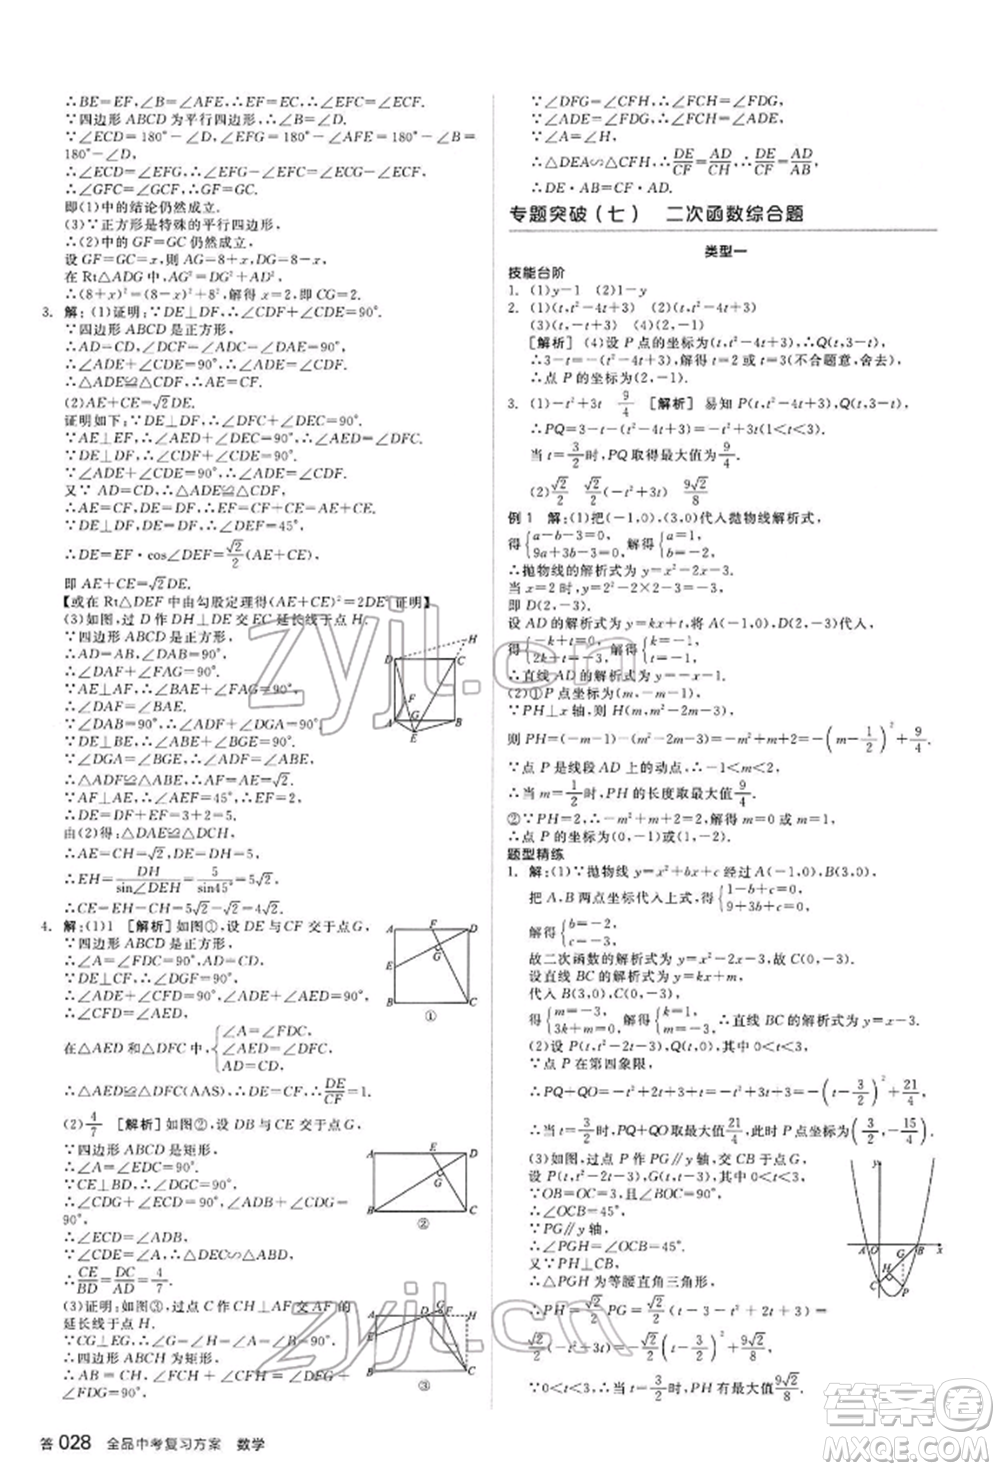 ∴BE=EF,∠B=∠AFE,∴EF=EC,∴∠EFC=∠ECF.
∵四边形ABCD为平行四边形,
∴∠ECD=180°-∠D,∠EFG=180°-∠AFE=180°-∠B=
180°-∠D,
∴∠ECD=∠EFG,∴∠EFG-∠EFC=∠ECD-∠ECF,
∴∠GFC=∠GCF,∴GF=GC.
即(1)中的结论仍然成立.
(3)∵正方形是特殊的平行四边形,
∴(2)中的GF=GC仍然成立.
设GF=GC=x,则AG=8+x,DG=8-x.
在Rt△ADG中,AG²=DG²+AD²,
∴(8+x)²=(8-x)²+8²,解得x=2,∴DG=6.
3. 解:(1)证明:∵∠ADF+∠CDF=∠CDF+∠DCF=90°.
∵四边形ABCD是正方形,
∴AD=CD,∠DCF=∠ADF.
∴∠ADE+∠ADF=∠ADF+∠CDF=90°.
∴∠ADE=∠CDF.
∴△ADE≌△CDF,∴AE=CF.
(2)AE+CE=√2DE.
证明如下:∵DE⊥DF,∴∠DFC+∠DEC=90°.
∵AE⊥EF,∴∠AED+∠DEC=90°,∴∠AED=∠DFC.
∵DE⊥DF,∴∠CDF+∠CDE=90°.
∵∠ADE+∠CDE=90°,∴∠ADE=∠CDF.
又∵AD=CD,∴△ADE≌△CDF.
∴AE=CF,DE=DF,∴AE+CE=EF.
∵DE⊥DF,DE=DF,∴∠DEF=45°,
∴DE=EF·cos∠DEF=√2/2(AE+CE).
即AE+CE=√2DE.
【或在Rt△DEF中由勾股定理得(AE+CE)²=2DE²证明】
(3)如图,过D作DH⊥DE交EC延长线于点H.
∵四边形ABCD是正方形,
∴AD=AB,∠DAB=90°.
∴∠DAF+∠FAG=90°.
∴∠BAE+∠FAG=90°.
∴∠DAF=∠BAE.
∵∠DAB=90°,∴∠ADF+∠DGA=90°.
∵∠DGA=∠BGE,∠ABE+∠BGE=90°,
∴∠ADF=∠ABE.
∴△ADF≌△ABE,∴AF=AE=√2.
∵∠FAE=90°,∴∠AEF=45°,EF=2,
∴DE=DF+EF=3+2=5.
由(2)得:△DAE≌△DCH,
∴AE=CH=√2,DE=DH=5,
∴EH=DH/sin∠DEH=5/sin45°=5√2.
∴CE=EH-CH=5√2-√2=4√2.
4. 解:(1)1 [解析]如图①,设DE与CF交于点G,
∵四边形ABCD是正方形,
∴∠A=∠FDC=90°,AD=CD.
∵DE⊥CF,∴∠DGF=90°,
∴∠ADE+∠CFD=90°.
∵∠ADE+∠AED=90°,
∴∠CFD=∠AED,
在△AED和△DFC中,{∠A=∠FDC, ∠CFD=∠AED, AD=CD,
∴△AED≌△DFC(AAS),∴DE=CF,∴DE/CF=1.
(2)4/7 [解析]如图②,设DB与CE交于点G,
∵四边形ABCD是矩形,
∴∠A=∠EDC=90°.
∵CE⊥BD,∴∠DGC=90°,
∴∠CDG+∠ECD=90°,∠ADB+∠CDG=90°,
∴∠ECD=∠ADB.
∵∠CDE=∠A,∴△DEC∽△ABD,
∴CE/BD=DC/AD=4/7.
(3)证明:如图③,过点C作CH⊥AF交AF的
延长线于点H.
∵CG⊥EG,∴∠G=∠H=∠A=90°,
∴四边形ABCH为矩形,
∴AB=CH,∠FCH+∠CFH=∠DFG+
∠FDG=90°.
∵∠DFG=∠CFH,∴∠FCH=∠FDG,
∵∠ADE=∠FDG,∴∠FCH=∠ADE,
∵∠A=∠H=90°,
∴△DEA∽△CFH,∴DE/CF=AD/CH,∴DE/CF=AD/AB,
∴DE·AB=CF·AD.
专题突破(七) 二次函数综合题
类型一
技能台阶
1. (1)y-1 (2)1-y
2. (1)(t,t²-4t+3) (2)(t,t²-4t+3)
(3)(t,-t+3) (4)(2,-1)
[解析] (4)设P点的坐标为(t,t²-4t+3),∴Q(t,-t+3),
∴3-t=-(t²-4t+3),解得t=2或t=3(不合题意,舍去),
∴点P的坐标为(2,-1).
3. (1)-t²+3t 9/4 [解析]易知P(t,t²-4t+3),Q(t,-t+3),
∴PQ=3-t-(t²-4t+3)=-t²+3t(0<t<3).
当t=3/2时,PQ取得最大值9/4.
(2)√2/2 √2/2(-t²+3t) 9√2/8
例1 解:(1)把(-1,0),(3,0)代入抛物线解析式,
得{a-b-3=0, 9a+3b-3=0,解得{a=1, b=-2,
∴抛物线的解析式为y=x²-2x-3.
当x=2时,y=2²-2×2-3=-3,
即D(2,-3).
设AD的解析式为y=kx+t,将A(-1,0),D(2,-3)代入,
得{-k+t=0, 2k+t=-3,解得{k=-1, t=-1,
∴直线AD的解析式为y=-x-1.
(2)①P点坐标为(m,-m-1),
∵PH⊥x轴,则H(m,m²-2m-3),
则PH=(-m-1)-(m²-2m-3)=-m²+m+2=-(m-1/2)²+9/4,
∵点P是线段AD上的动点,∴-1<m<2,
∴当m=1/2时,PH的长度取最大值9/4.
②∵PH=2,∴-m²+m+2=2,解得m=0或m=1,
∴点P的坐标为(0,-1)或(1,-2).
题型精练
1. 解:(1)∵抛物线y=x²+bx+c经过A(-1,0),B(3,0),
把A,B两点坐标代入上式,得{1-b+c=0, 9+3b+c=0,
解得{b=-2, c=-3,
故二次函数的解析式为y=x²-2x-3,故C(0,-3).
设直线BC的解析式为y=kx+m,
代入B(3,0),C(0,-3),
得{m=-3, 3k+m=0,解得{k=1, m=-3,∴直线BC的解析式为y=x-3.
(2)设P(t,t²-2t-3),Q(t,0),其中0<t<3,
∵点P在第四象限,
∴PQ+QO=-t²+2t+3+t=-t²+3t+3=-(t-3/2)²+21/4,
∴当t=3/2时,PQ+QO最大值为21/4,此时P点坐标为(3/2,-15/4).
(3)如图,过点P作PG∥y轴,交BC于点G,
设P(t,t²-2t-3),则G(t,t-3),其中0<t<3,
∵OB=OC=3,且∠BOC=90°,
∴∠OCB=45°,
∵PG∥y轴,
∴∠PGH=∠OCB=45°,
又∵PH⊥BC,
∴△PGH为等腰直角三角形,
∴PH=√2/2PG=√2/2(t-3-t²+2t+3)=
√2/2(-t²+3t)=-√2/2(t-3/2)²+9√2/8,
∵0<t<3,∴当t=3/2时,PH有最大值9√2/8.
答028 全品中考复习方案 数学